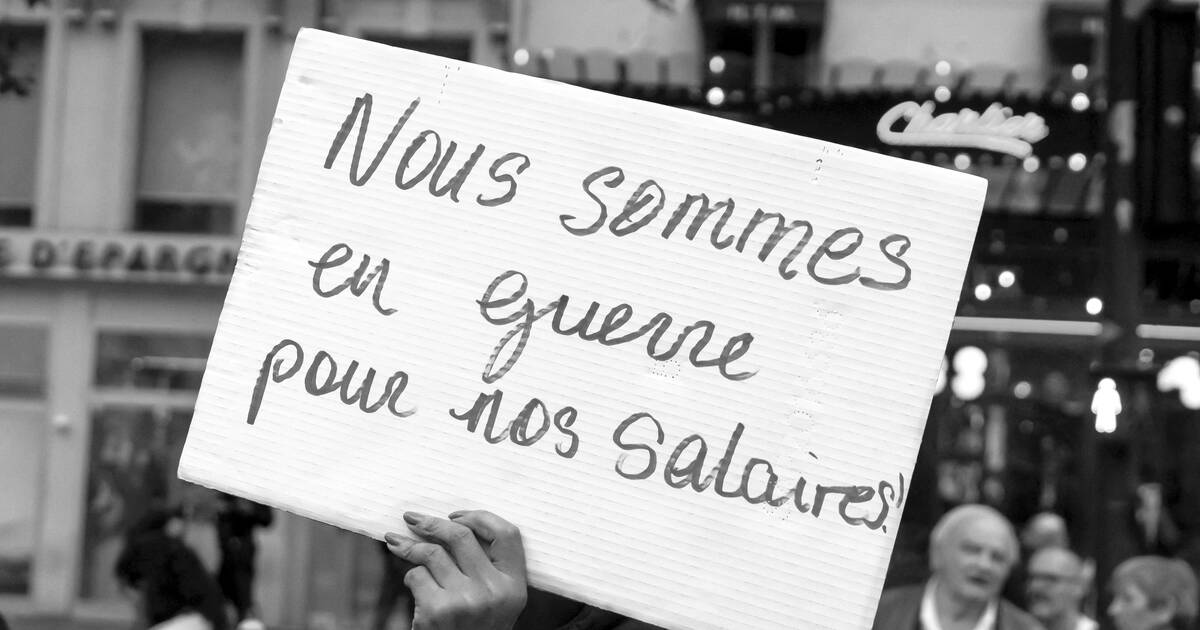 Nous sommes
en guerre
pour nos salaires!
E D'EPARGN
Chartier